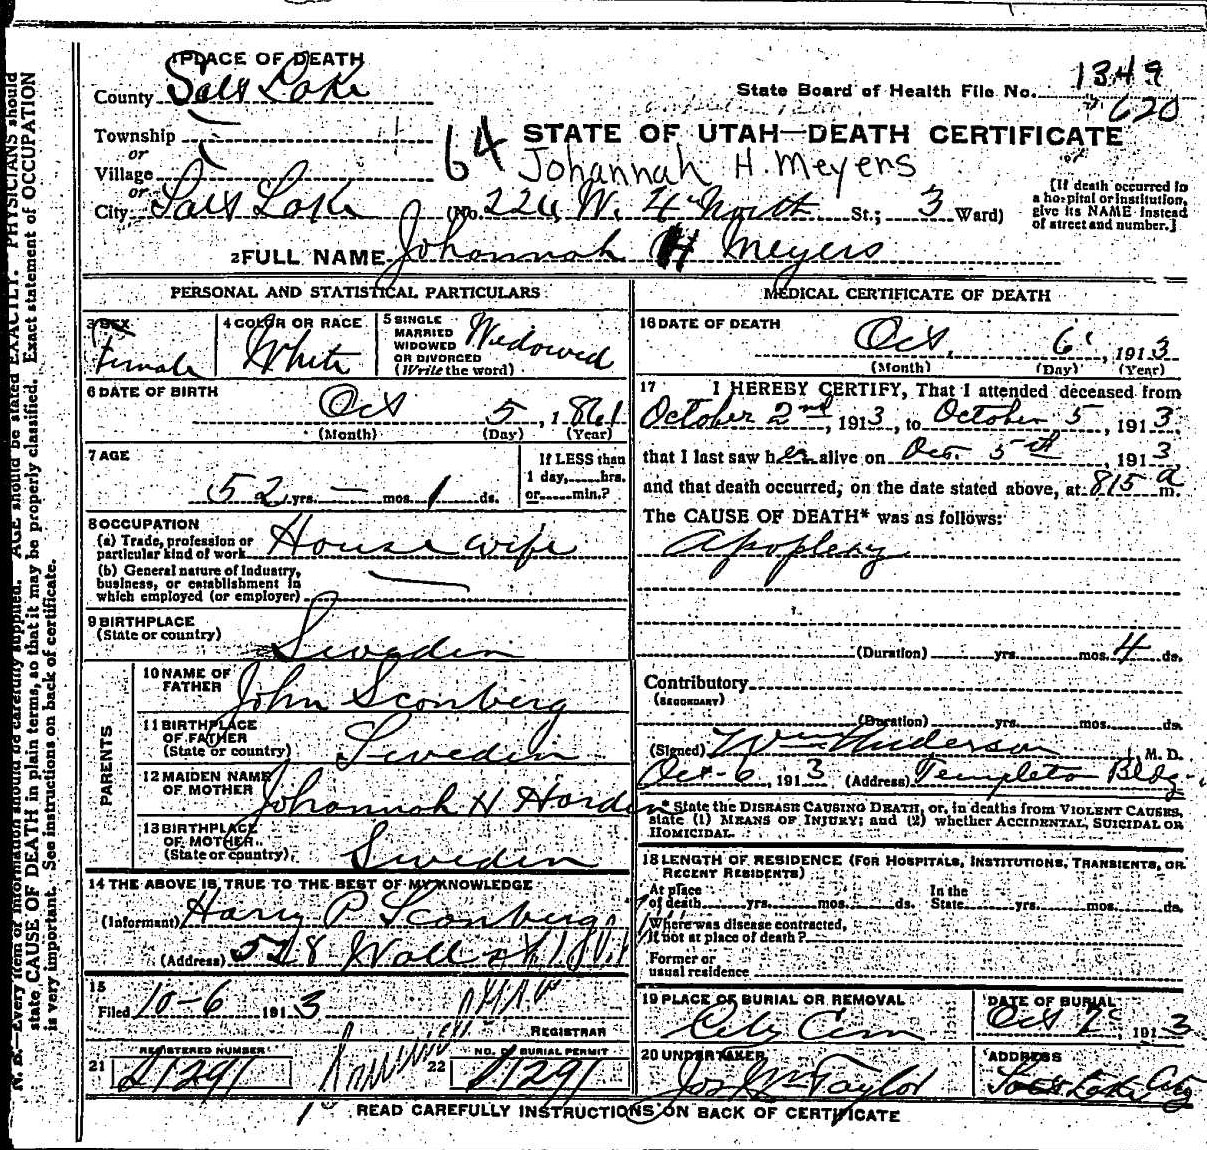 1 PLACE OF DEATH
County Salt Lake
State Board of Health File No. 1349
620
Township
or
Village
or
64 STATE OF UTAH—DEATH CERTIFICATE
Johannah H. Meyers
City Salt Lake (No. 226 W. 4th North St.; 3 Ward)
[If death occurred in a hospital or institution, give its NAME instead of street and number.]
2 FULL NAME Johannah H Meyers
PERSONAL AND STATISTICAL PARTICULARS
3 SEX Female
4 COLOR OR RACE White
5 SINGLE MARRIED WIDOWED OR DIVORCED (Write the word) Widowed
6 DATE OF BIRTH Oct 5, 1861
(Month) (Day) (Year)
7 AGE 52 yrs. — mos. 1 ds.
If LESS than 1 day, hrs. or min.?
8 OCCUPATION
(a) Trade, profession or particular kind of work Housewife
(b) General nature of industry, business, or establishment in which employed (or employer)
9 BIRTHPLACE
(State or country) Sweden
PARENTS
10 NAME OF FATHER John Sconberg
11 BIRTHPLACE OF FATHER (State or country) Sweden
12 MAIDEN NAME OF MOTHER Johannah H Horden
13 BIRTHPLACE OF MOTHER (State or country) Sweden
14 THE ABOVE IS TRUE TO THE BEST OF MY KNOWLEDGE
(Informant) Harry P Sconberg
(Address) 528 Wall st
15
Filed 10-6 1913
REGISTRAR
21 REGISTERED NUMBER
22 NO. OF BURIAL PERMIT
MEDICAL CERTIFICATE OF DEATH
16 DATE OF DEATH
Oct, 6, 1913
(Month) (Day) (Year)
17 I HEREBY CERTIFY, That I attended deceased from
October 2nd, 1913, to October 5, 1913,
that I last saw her alive on Oct. 5th, 1913
and that death occurred, on the date stated above, at 815 a m.
The CAUSE OF DEATH* was as follows:
Apoplexy
(Duration) yrs. mos. 4 ds.
Contributory
(SECONDARY)
(Duration) yrs. mos. ds.
(Signed) Wm Anderson, M. D.
Oct-6, 1913 (Address) Templeton Bldg.
* State the DISEASE CAUSING DEATH, or, in deaths from VIOLENT CAUSES, state (1) MEANS OF INJURY; and (2) whether ACCIDENTAL, SUICIDAL OR HOMICIDAL.
18 LENGTH OF RESIDENCE (FOR HOSPITALS, INSTITUTIONS, TRANSIENTS, OR RECENT RESIDENTS)
At place of death yrs. mos. ds. In the State yrs. mos. ds.
Where was disease contracted, if not at place of death?
Former or usual residence
19 PLACE OF BURIAL OR REMOVAL City Cem
DATE OF BURIAL Oct 7 1913
20 UNDERTAKER Jos Wm Taylor
ADDRESS Salt Lake City
READ CAREFULLY INSTRUCTIONS ON BACK OF CERTIFICATE
N. B.—Every item of information should be carefully supplied. AGE should be stated EXACTLY. PHYSICIANS should
state CAUSE OF DEATH in plain terms, so that it may be properly classified. Exact statement of OCCUPATION
is very important. See instructions on back of certificate.